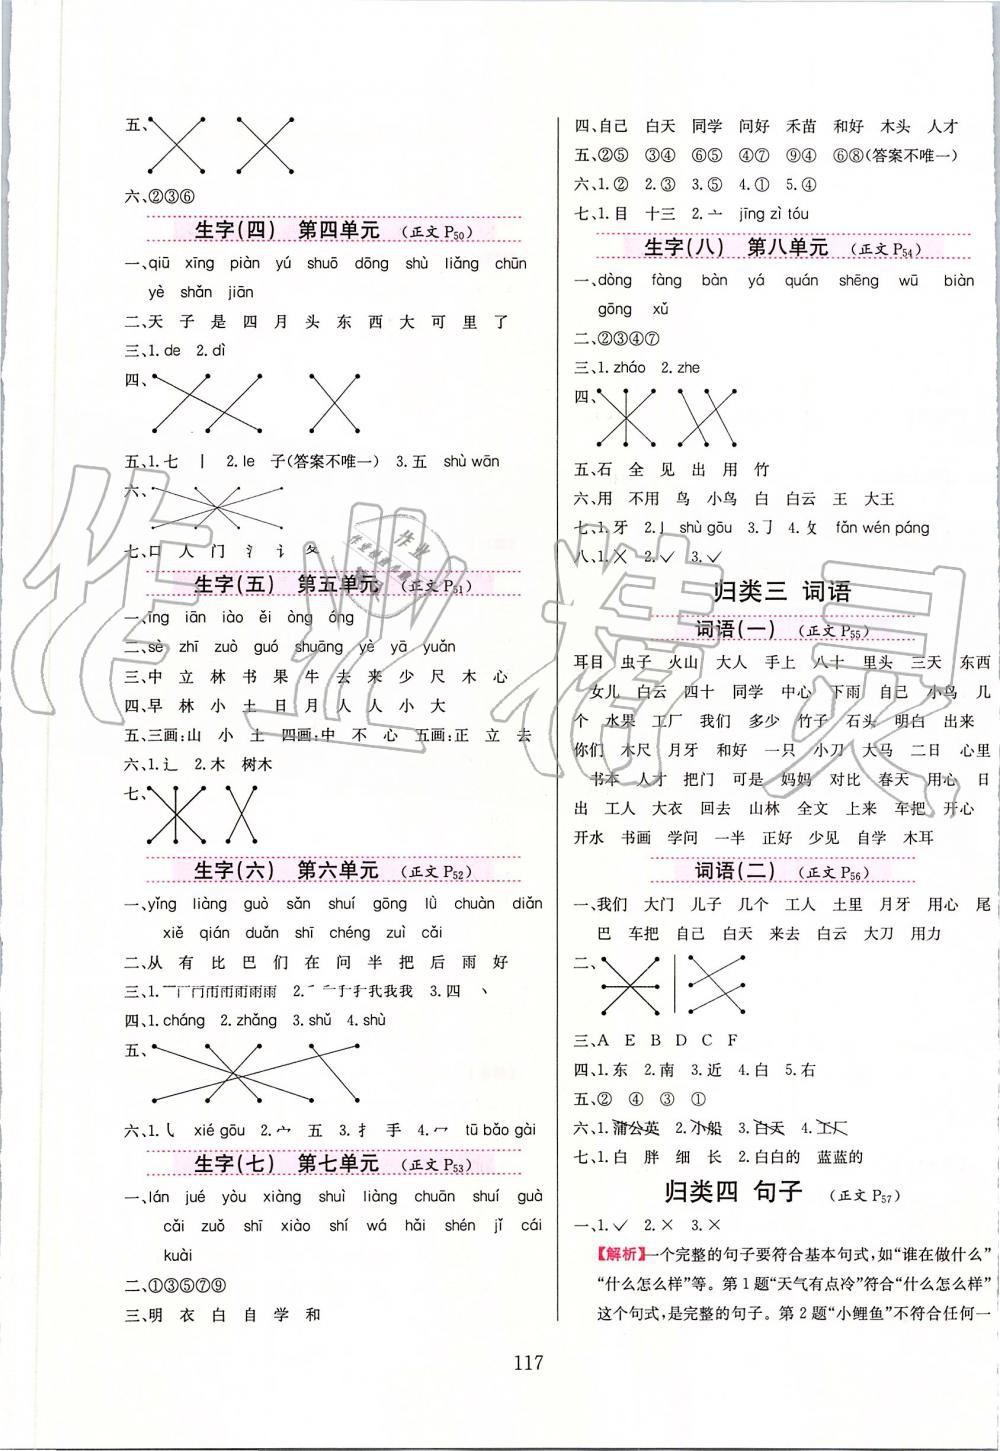 五、
六、②③⑥
生字(四) 第四单元 (正文 P50)
一、qiū xīng piàn yú shuō dōng shù liǎng chūn
yè shǎn jiān
二、天 子 是 四 月 头 东 西 大 可 里 了
三、1. de 2. dì
四、
五、1. 七 丨 2. le 子(答案不唯一) 3. 五 shù wān
六、
七、口 人 门 氵 讠 夂
生字(五) 第五单元 (正文 P51)
一、īng iān iào ěi òng óng
二、sè zhǐ zuò guó shuāng yè yā yuǎn
三、中 立 林 书 果 牛 去 来 少 尺 木 心
四、早 林 小 土 日 月 人 人 小 大
五、三画:山 小 土 四画:中 不 心 五画:正 立 去
六、1. 辶 2. 木 树木
七、
生字(六) 第六单元 (正文 P52)
一、yǐng liàng guò sǎn shuí gōng lǜ chuàn diǎn
xiě qián duǎn shī chéng zuì cǎi
二、从 有 比 巴 们 在 问 半 把 后 雨 好
四、1. cháng 2. zhǎng 3. shǔ 4. shù
五、
六、1. ㇂ xié gōu 2. 宀 五 3. 扌 手 4. 冖 tū bǎo gài
生字(七) 第七单元 (正文 P53)
一、lán jué yòu xiàng shuì liàng chuān shuí guà
cǎi zuǒ shī xiào shí wá hái shén jǐ cái
kuài
二、①③⑤⑦⑨
三、明 衣 白 自 学 和
四、自己 白天 同学 问好 禾苗 和好 木头 人才
五、②⑤ ③④ ⑥⑤ ④⑦ ⑨④ ⑥⑧(答案不唯一)
六、1. ② 2. ③ 3. ⑤ 4. ① 5. ④
七、1. 目 十三 2. 亠 jīng zì tóu
生字(八) 第八单元 (正文 P54)
一、dòng fàng bàn yá quán shēng wū biàn
gōng xǔ
二、②③④⑦
三、1. zháo 2. zhe
四、
五、石 全 见 出 用 竹
六、用 不用 鸟 小鸟 白 白云 王 大王
七、1. 牙 2. 亅 shù gōu 3. ㇆ 4. 攵 fǎn wén páng
八、1. ✕ 2. ✓ 3. ✓
归类三 词语
词语(一) (正文 P55)
耳目 虫子 火山 大人 手上 八十 里头 三天 东西
女儿 白云 四十 同学 中心 下雨 自己 小鸟 几
个 水果 工厂 我们 多少 竹子 石头 明白 出来
你们 木尺 月牙 和好 一只 小刀 大马 二日 心里
书本 人才 把门 可是 妈妈 对比 春天 用心 日
出 工人 大衣 回去 山林 全文 上来 车把 开心
开水 书画 学问 一半 正好 少见 自学 木耳
词语(二) (正文 P56)
一、我们 大门 儿子 几个 工人 土里 月牙 用心 尾
巴 车把 自己 白天 来去 白云 大刀 用力
二、
三、A E B D C F
四、1. 东 2. 南 3. 近 4. 白 5. 右
五、② ④ ③ ①
六、1. 蒲公英 2. 小船 3. 白天 4. 工厂
七、1. 白 胖 细 长 2. 白白的 蓝蓝的
归类四 句子 (正文 P57)
一、1. ✓ 2. ✕ 3. ✕
【解析】一个完整的句子要符合基本句式,如“谁在做什么”
“什么怎么样”等。第 1 题“天气有点冷”符合“什么怎么样”
这个句式,是完整的句子。第 2 题“小鲤鱼”不符合任何一
117
作业精灵